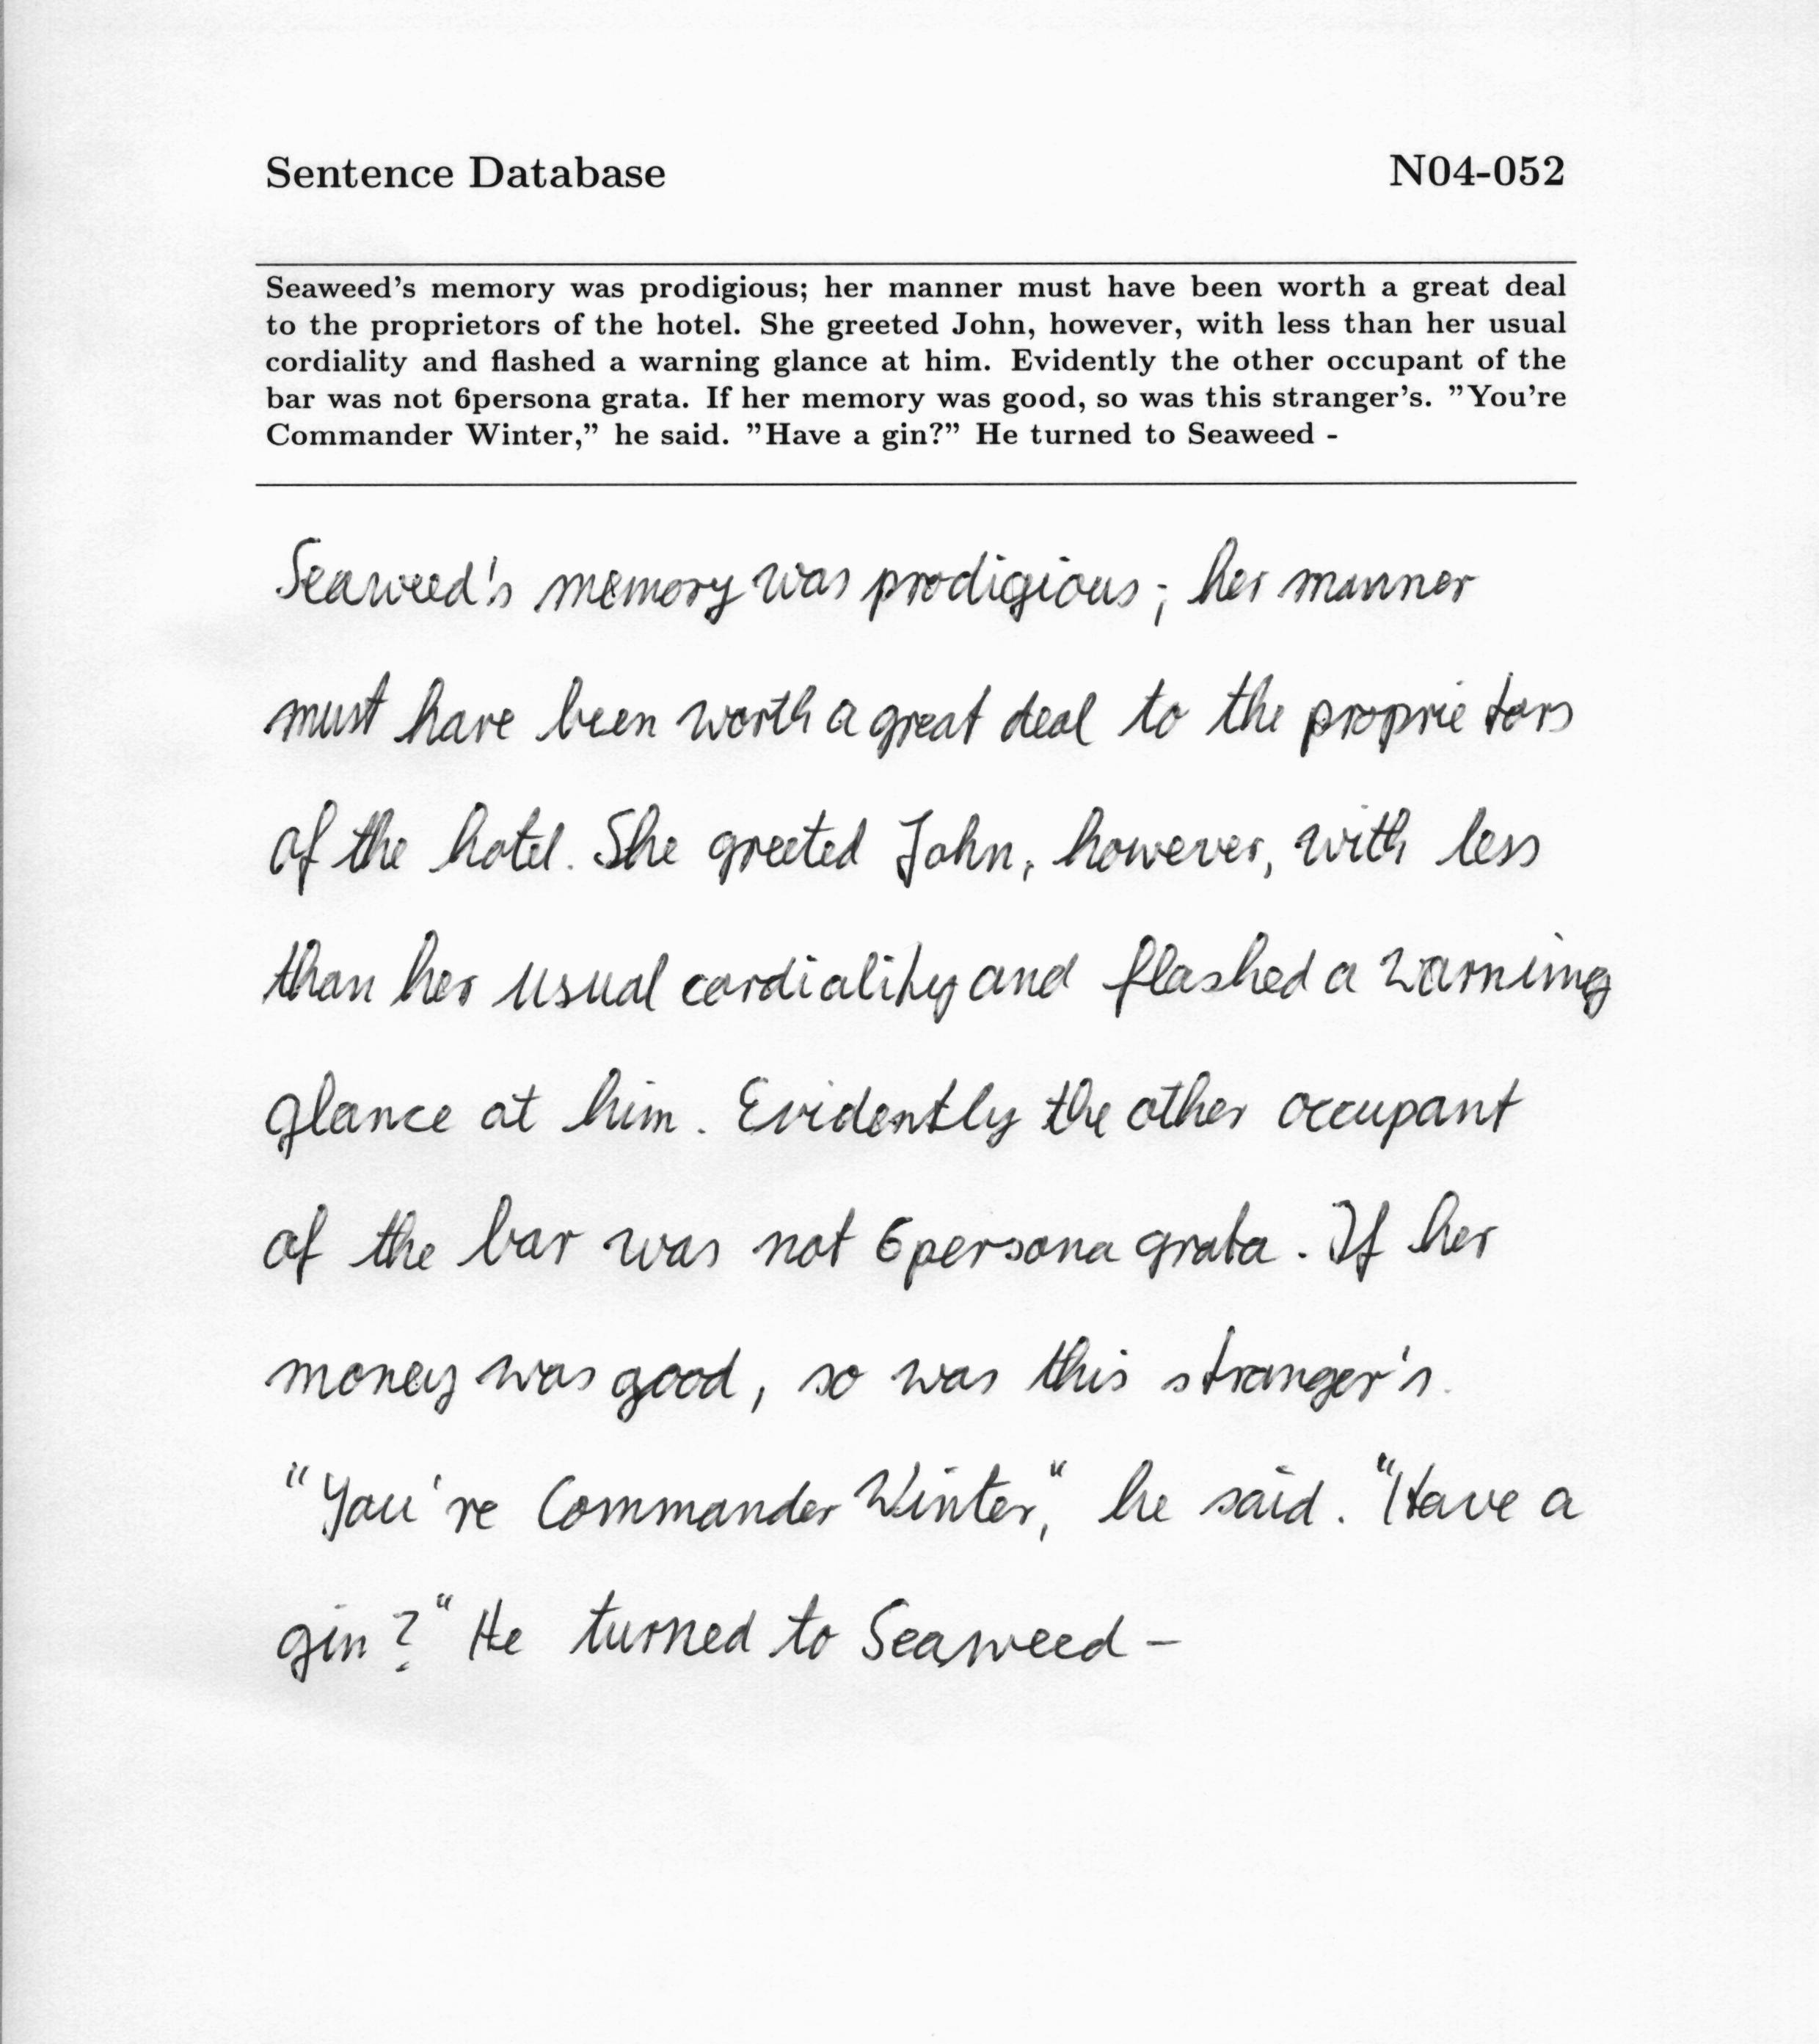 Sentence Database N04-052
Seaweed's memory was prodigious; her manner must have been worth a great deal
to the proprietors of the hotel. She greeted John, however, with less than her usual
cordiality and flashed a warning glance at him. Evidently the other occupant of the
bar was not 6persona grata. If her memory was good, so was this stranger's. ”You're
Commander Winter,” he said. ”Have a gin?” He turned to Seaweed -
Seaweed's memory was prodigious; her manner
must have been worth a great deal to the proprietors
of the hotel. She greeted John, however, with less
than her usual cordiality and flashed a warning
glance at him. Evidently the other occupant
of the bar was not 6persona grata. If her
money was good, so was this stranger's.
"You're Commander Winter," he said. "Have a
gin?" He turned to Seaweed -